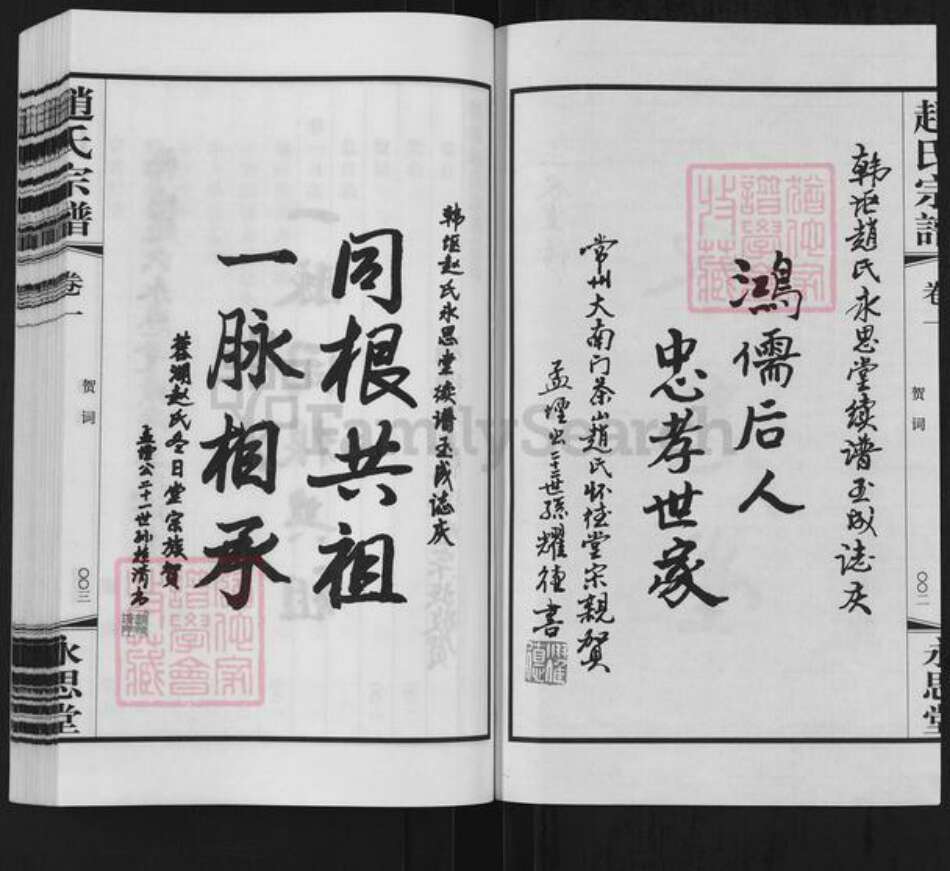 趙氏宗譜
卷一
贺词
〇〇二
永思堂
韩垇趙氏永思堂续谱玉成誌庆
鴻儒后人
忠孝世家
常州大南门茶山趙氏怀德堂宗親贺
孟堙公二十世孫耀德書
趙氏宗譜
卷一
贺词
〇〇三
永思堂
韩垇赵氏永思堂续谱玉成誌庆
同根共祖
一脉相承
蓉湖赵氏冬日堂宗族贺
孟堙公二十一世孙
FamilySearch